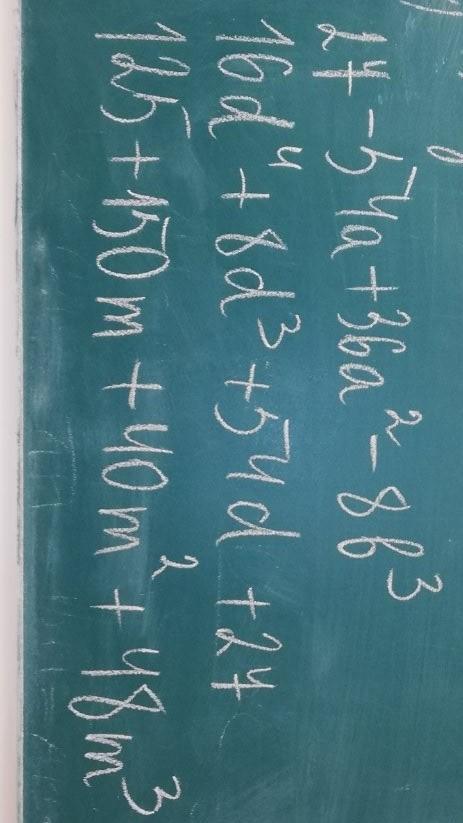 27 - 54a + 36a² - 8b³
16d⁴ + 8d³ + 54d + 27
125 + 150m + 40m² + 48m³